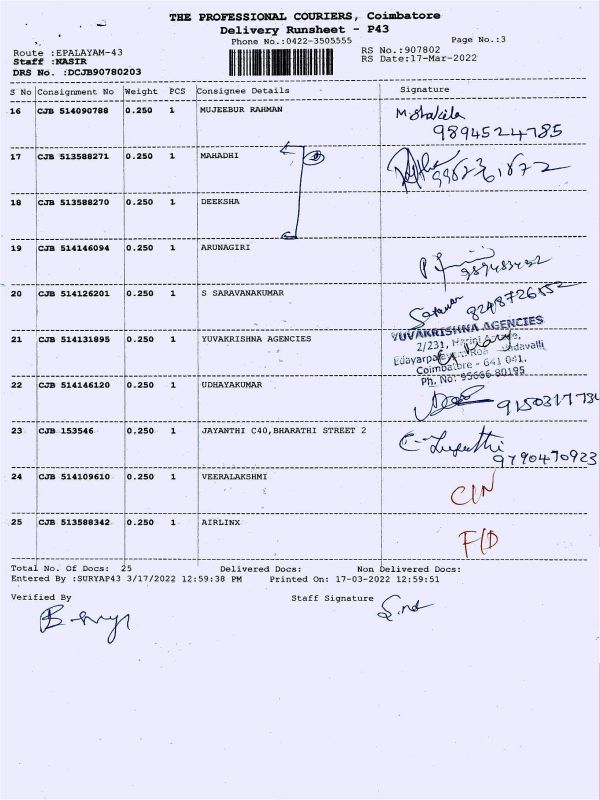 THE PROFESSIONAL COURIERS, Coimbatore
Delivery Runsheet - P43
Phone No.:0422-3505555 Page No.:3
Route :EPALAYAM-43 RS No.:907802
Staff :NASIR RS Date:17-Mar-2022
DRS No. :DCJB90780203
S No Consignment No Weight PCS Consignee Details Signature
16 CJB 514090788 0.250 1 MUJEEBUR RAHMAN
9894524785
17 CJB 513588271 0.250 1 MAHADHI
18 CJB 513588270 0.250 1 DEEKSHA
19 CJB 514146094 0.250 1 ARUNAGIRI
20 CJB 514126201 0.250 1 S SARAVANAKUMAR
8248726552
21 CJB 514131895 0.250 1 YUVAKRISHNA AGENCIES YUVAKRISHNA AGENCIES
2/231, Harini
Coimbatore - 641 041.
Ph. No: 95666 80195
22 CJB 514146120 0.250 1 UDHAYAKUMAR
23 CJB 153546 0.250 1 JAYANTHI C40,BHARATHI STREET 2
9790470923
24 CJB 514109610 0.250 1 VEERALAKSHMI
25 CJB 513588342 0.250 1 AIRLINX F/D
Total No. Of Docs: 25 Delivered Docs: Non Delivered Docs:
Entered By :SURYAP43 3/17/2022 12:59:38 PM Printed On: 17-03-2022 12:59:51
Verified By Staff Signature